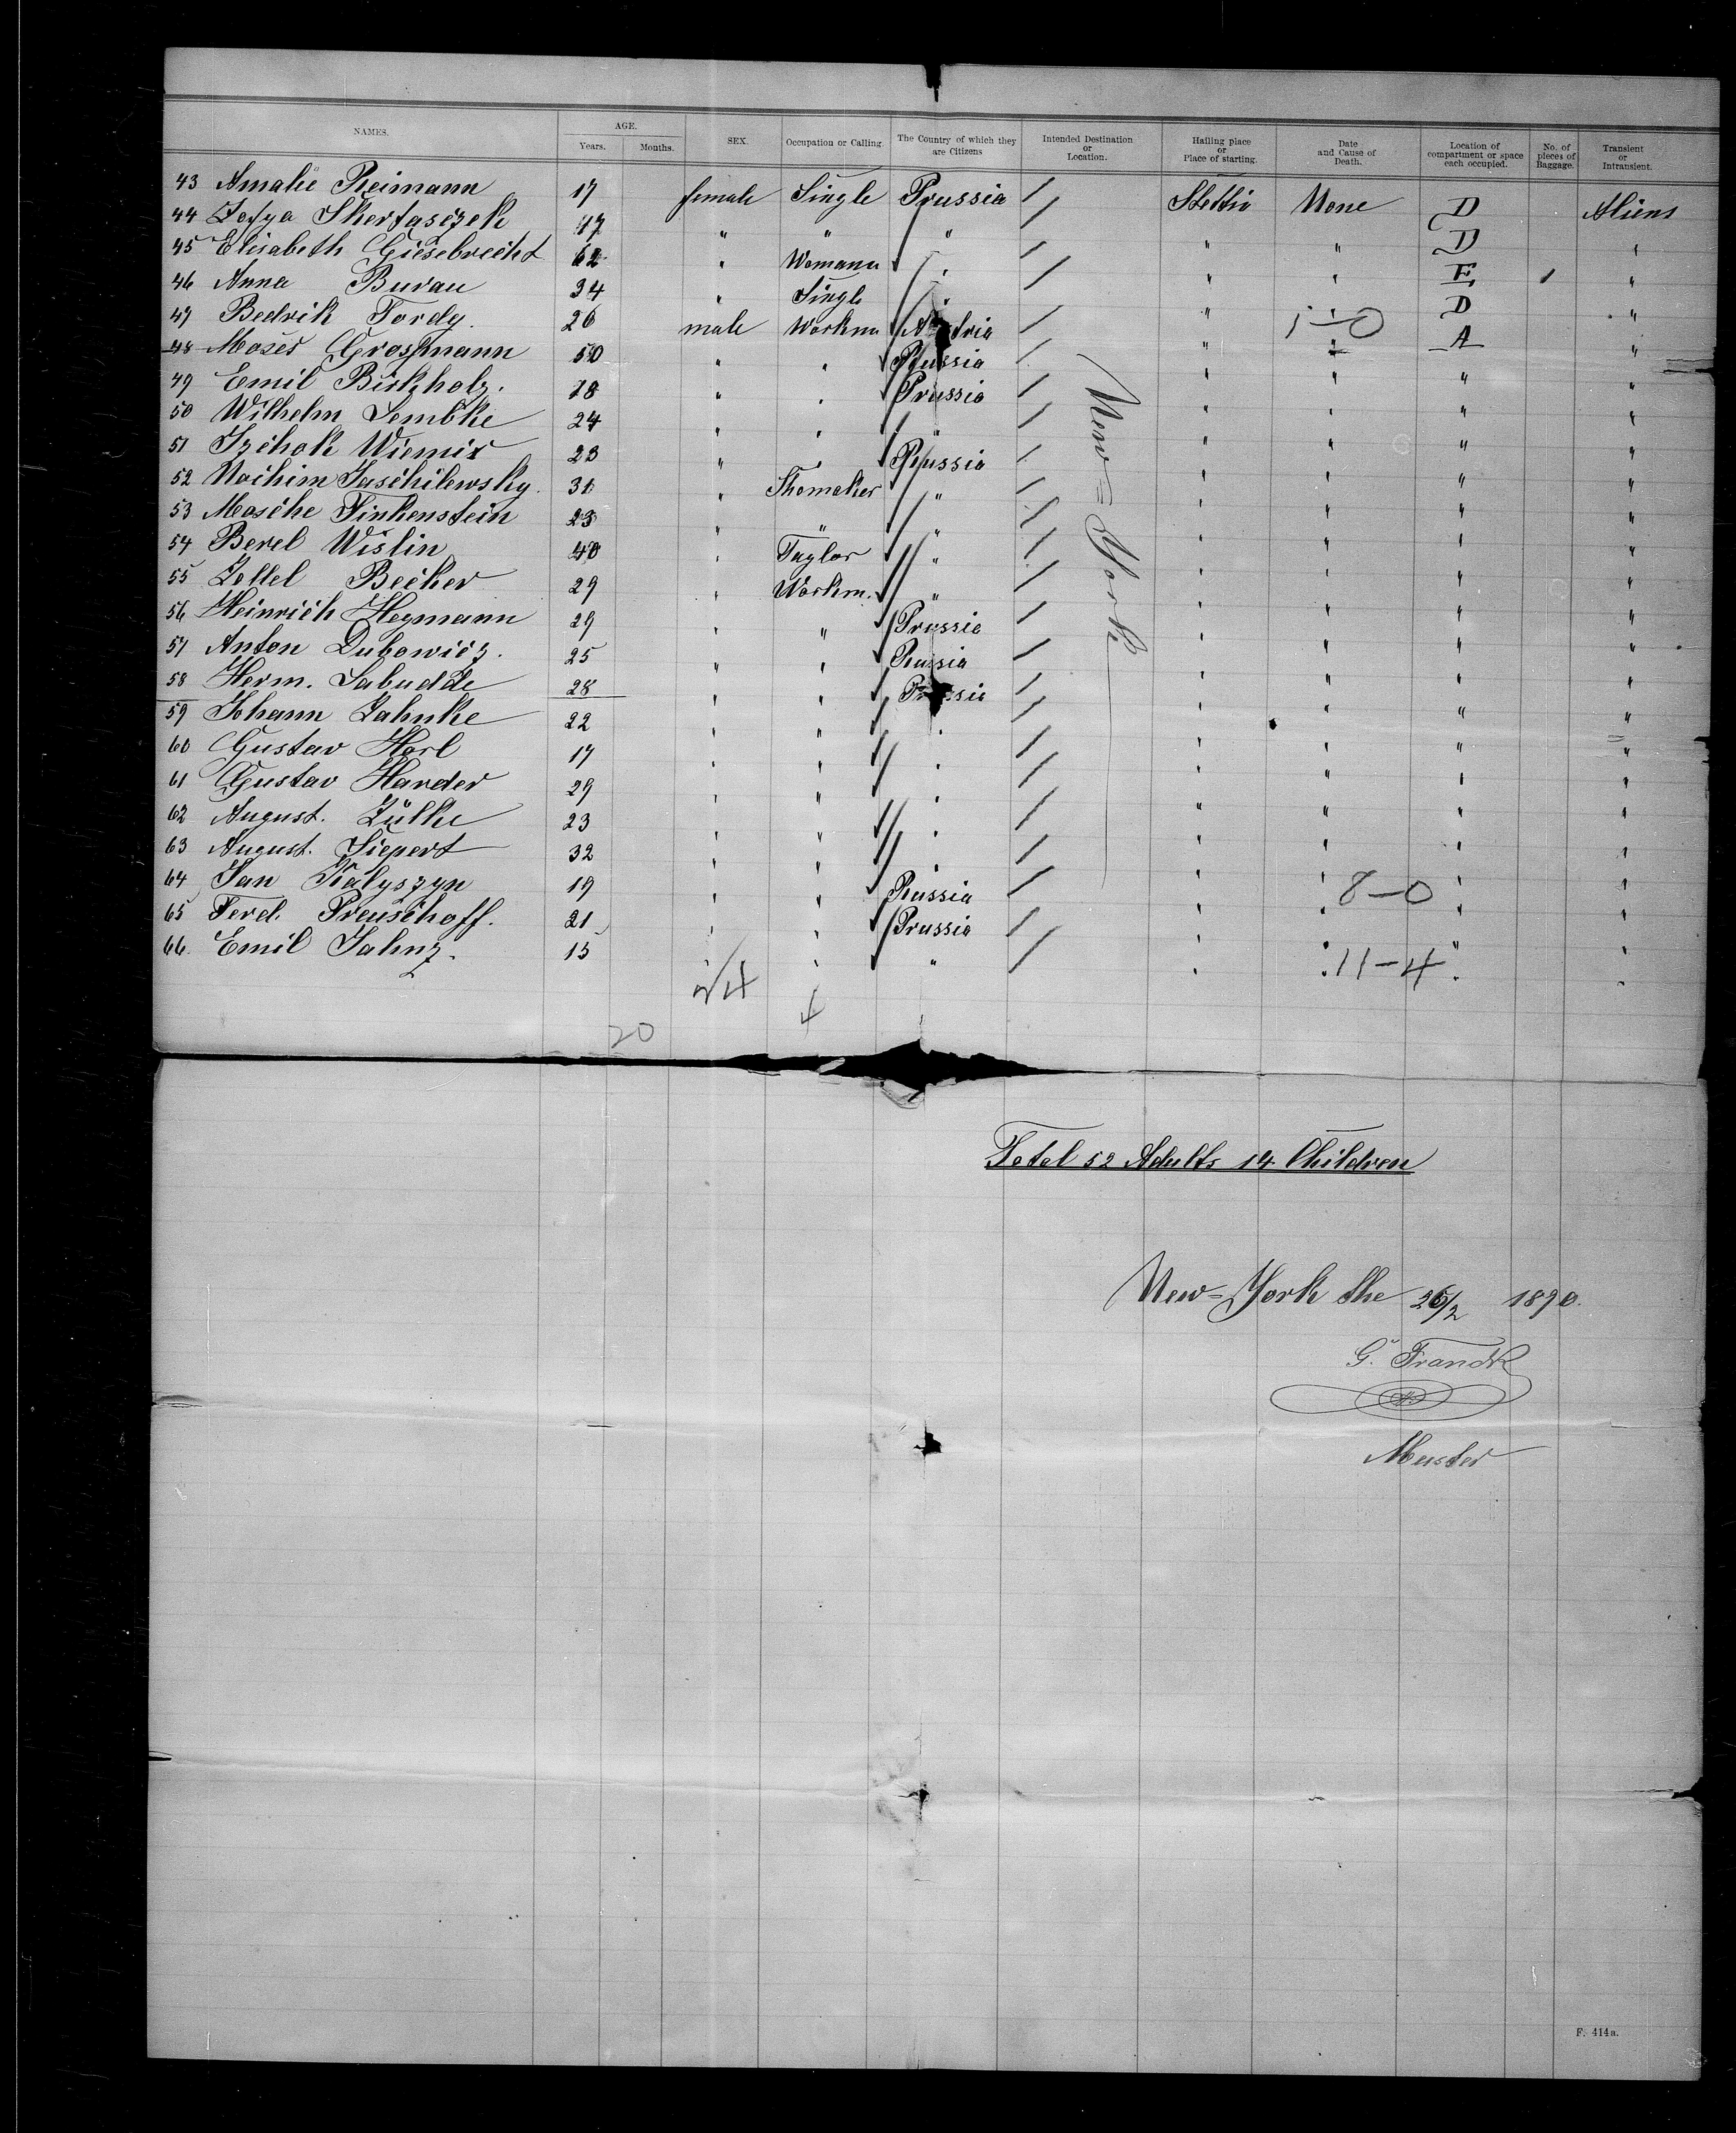 NAMES. AGE. Years. Months. SEX. Occupation or Calling. The Country of which they are Citizens Intended Destination or Location. Hailing place or Place of starting. Date and Cause of Death. Location of compartment or space each occupied. No. of pieces of Baggage. Transient or Intransient.
43 Amalie Reimann 17 female Single Prussia / Stettin None D Aliens
44 Zofya Skertasczek 17 " " " / " " D "
45 Elisabeth Giesebrecht 62 " Womann " / " " E 1 "
46 Anna Burau 34 " Single " / " " D "
47 Bedrik Tordy. 26 male Workm Austria / " 1-0 A "
48 Moses Grossmann 50 " " Russia / " " " "
49 Emil Birkholz. 18 " " Prussia / " " " "
50 Wilhelm Lembke 24 " " " / " " " "
51 Izchok Wiemix 23 " " Russia / " " " "
52 Nochim Jaschilewsky. 31 " Shomaker " / " " " "
53 Mosche Finkenstein 23 " " " / " " " "
54 Berel Wislin 40 " Taylor " / " " " "
55 Lellel Becker 29 " Workm. " / " " " "
56 Heinrich Heymann 29 " " Prussia / " " " "
57 Anton Dubowicz. 25 " " Russia / " " " "
58 Herm. Labudde 28 " " Prussia / " " " "
59 Johann Zahnke 22 " " " / " " " "
60 Gustav Horl 17 " " " / " " " "
61 Gustav Harder 29 " " " / " " " "
62 August. Zülke 23 " " " / " " " "
63 August. Siepert 32 " " " / " " " "
64 Jan Kalyszyn 19 " " Russia / " 8-0 " "
65 Ferd. Preuschoff. 21 " " Prussia / " " " "
66. Emil Jahnz. 15 " " " / " 11-4 " "
New=York
24 4
20
Total 52 Adults 14 Children
New=York the 26/2 1890.
G. Frandt
Master
F. 414a.